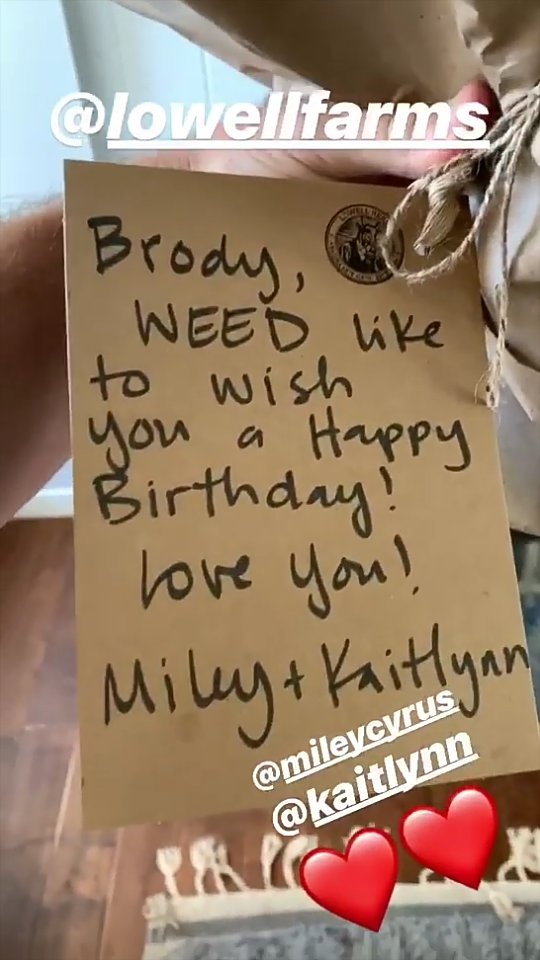 @lowellfarms
Brody,
WEED like
to wish
you a Happy
Birthday!
Love you!
Miley + Kaitlynn
@mileycyrus
@kaitlynn